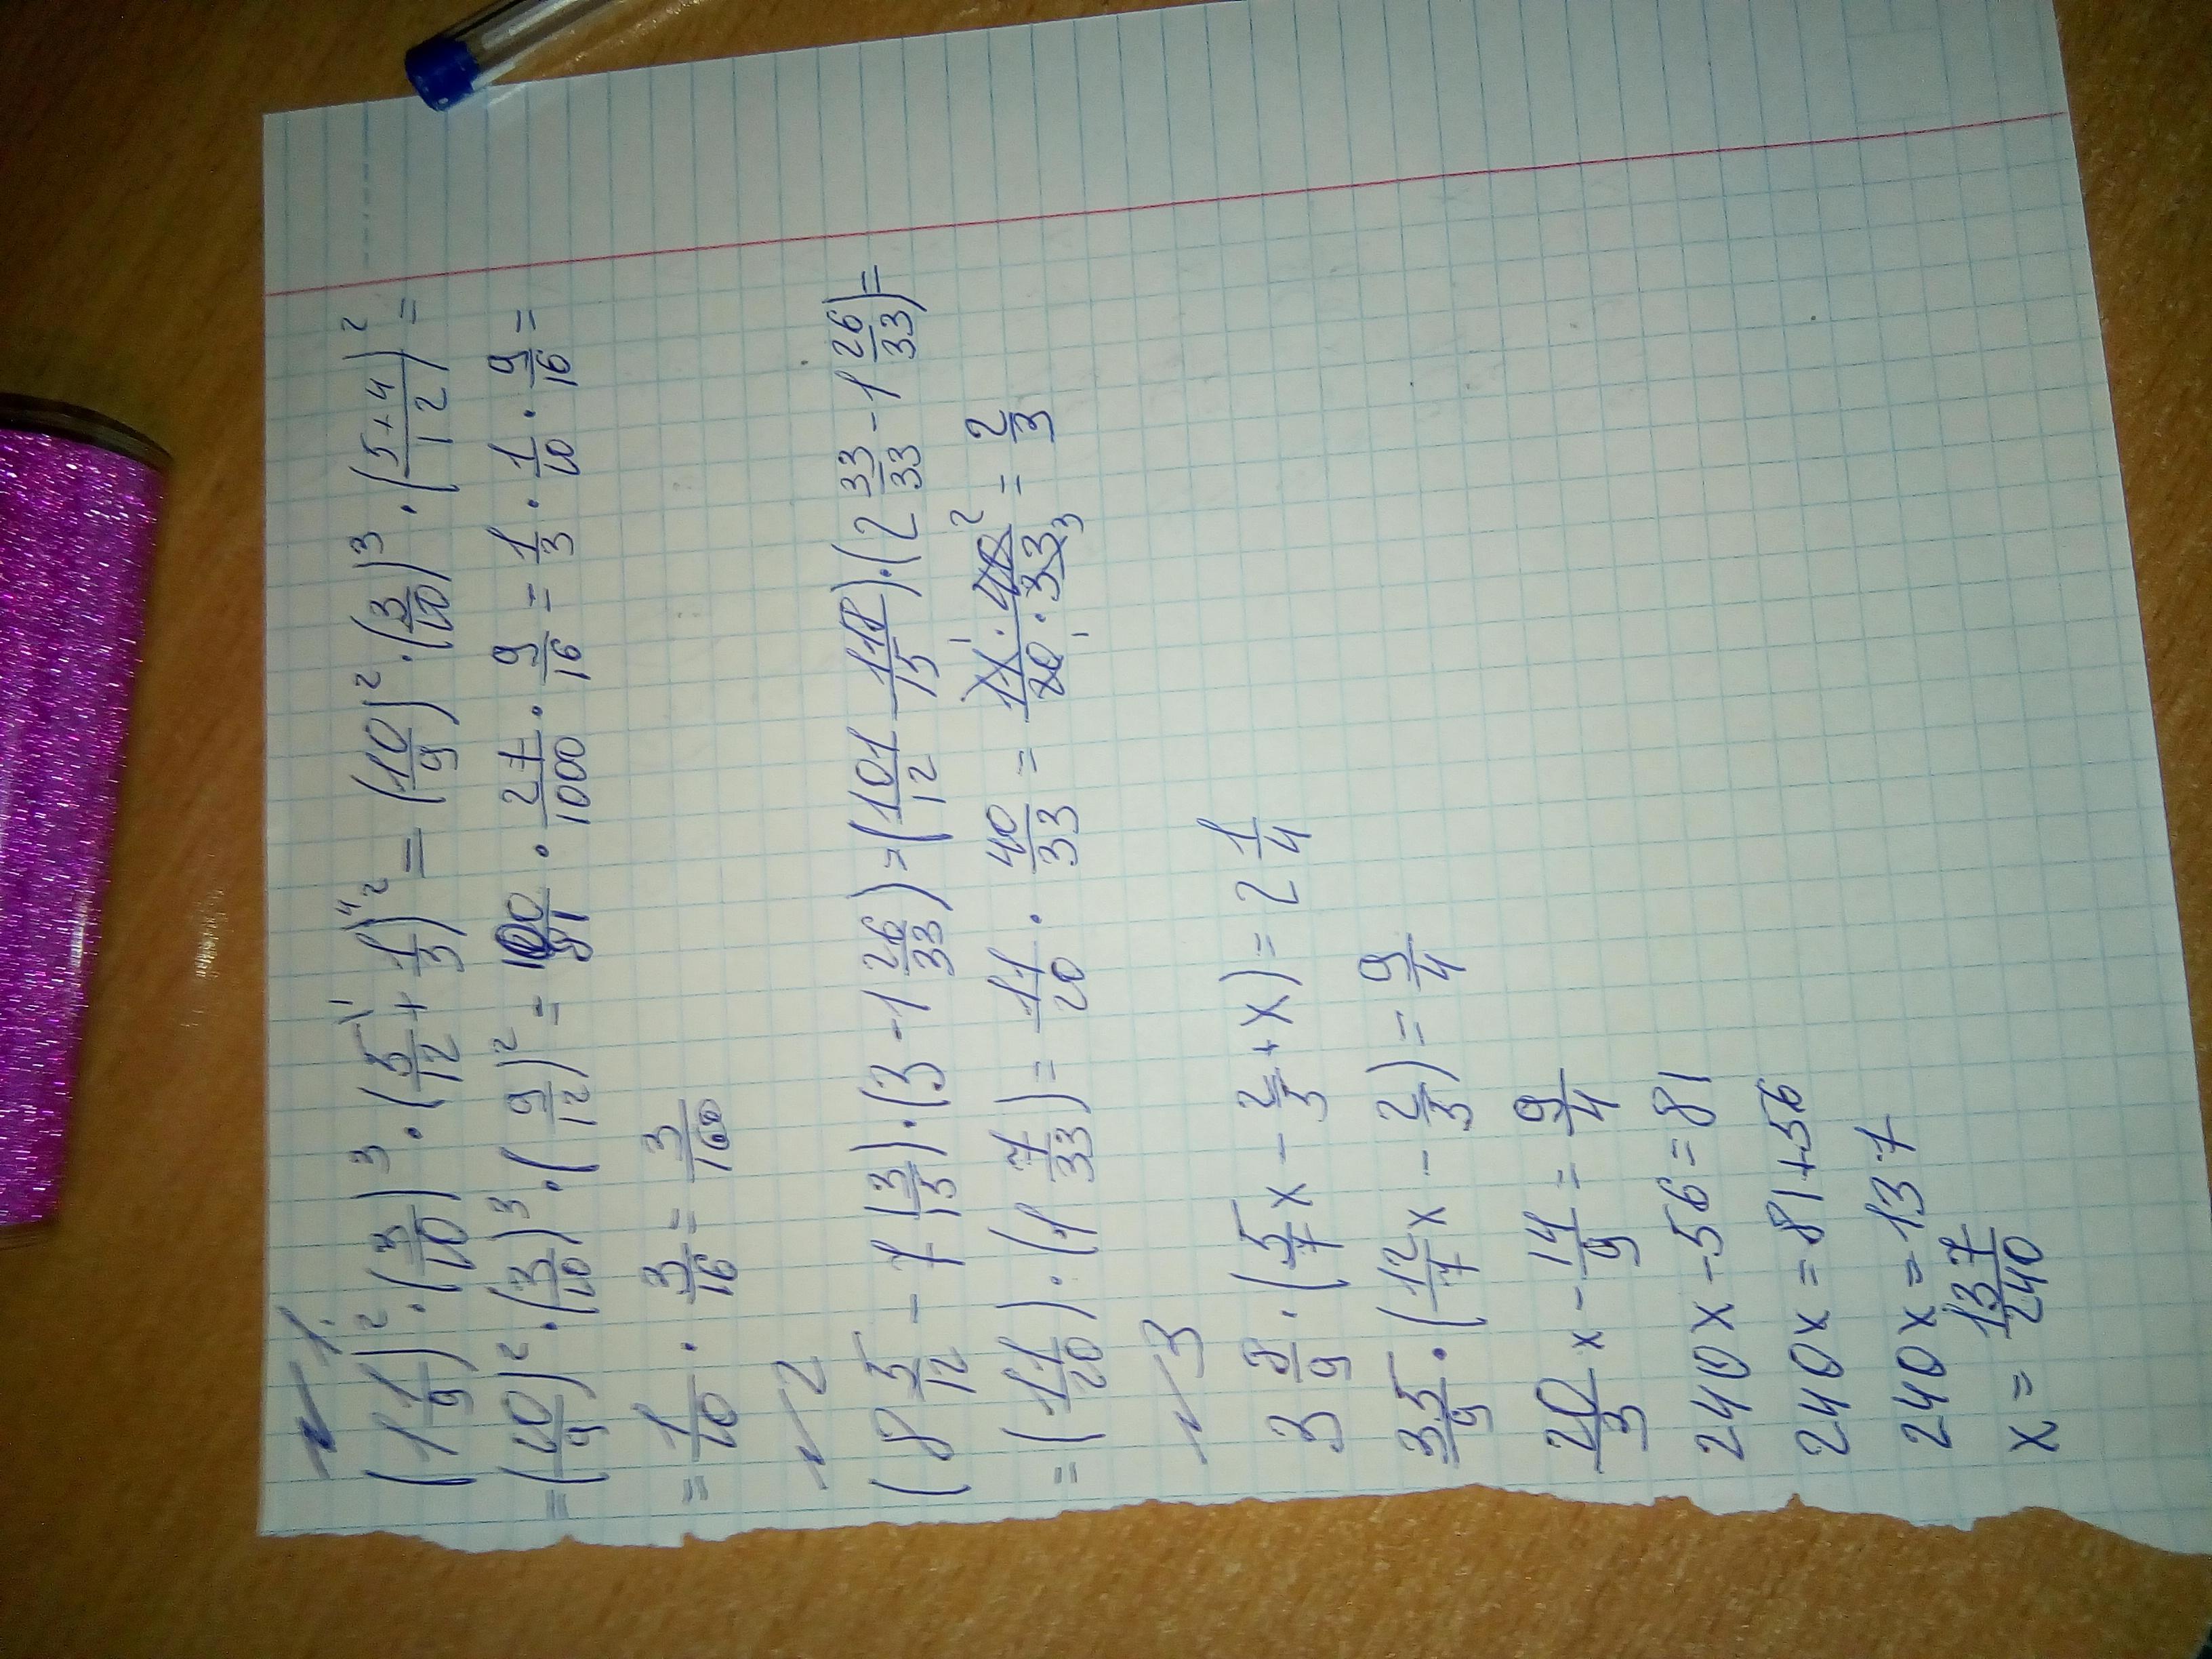 № 1.
(1 1/9)² · (3/10)³ · (5/12 \¹ + 1/3 \⁴)² = (10/9)² · (3/10)³ · ((5+4)/12)² =
= (10/9)² · (3/10)³ · (9/12)² = 100/81 · 27/1000 · 9/16 = 1/3 · 1/10 · 9/16 =
= 1/10 · 3/16 = 3/160
№ 2
(8 5/12 - 7 13/15) · (3 - 1 26/33) = (101/12 - 118/15) · (2 33/33 - 1 26/33) =
= (11/20) · (1 7/33) = 11/20 · 40/33 = (11¹ · 40²)/(20₁ · 33₃) = 2/3
№ 3
3 8/9 · (5/7 x - 2/3 + x) = 2 1/4
35/9 · (12/7 x - 2/3) = 9/4
20/3 x - 14/9 = 9/4
240x - 56 = 81
240x = 81+56
240x = 137
x = 137/240